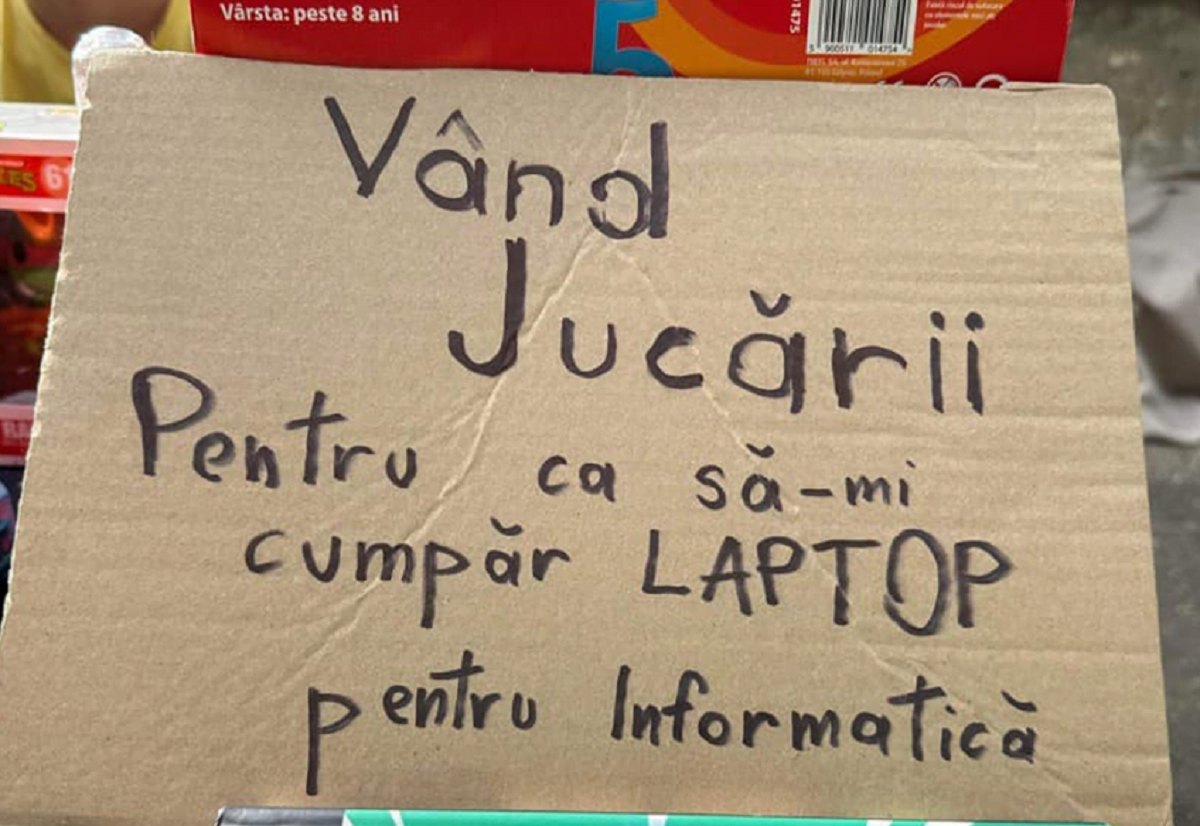 Vârsta: peste 8 ani
5
5 900511 014754
61
Vând
Jucării
Pentru ca să-mi
cumpăr LAPTOP
pentru Informatică